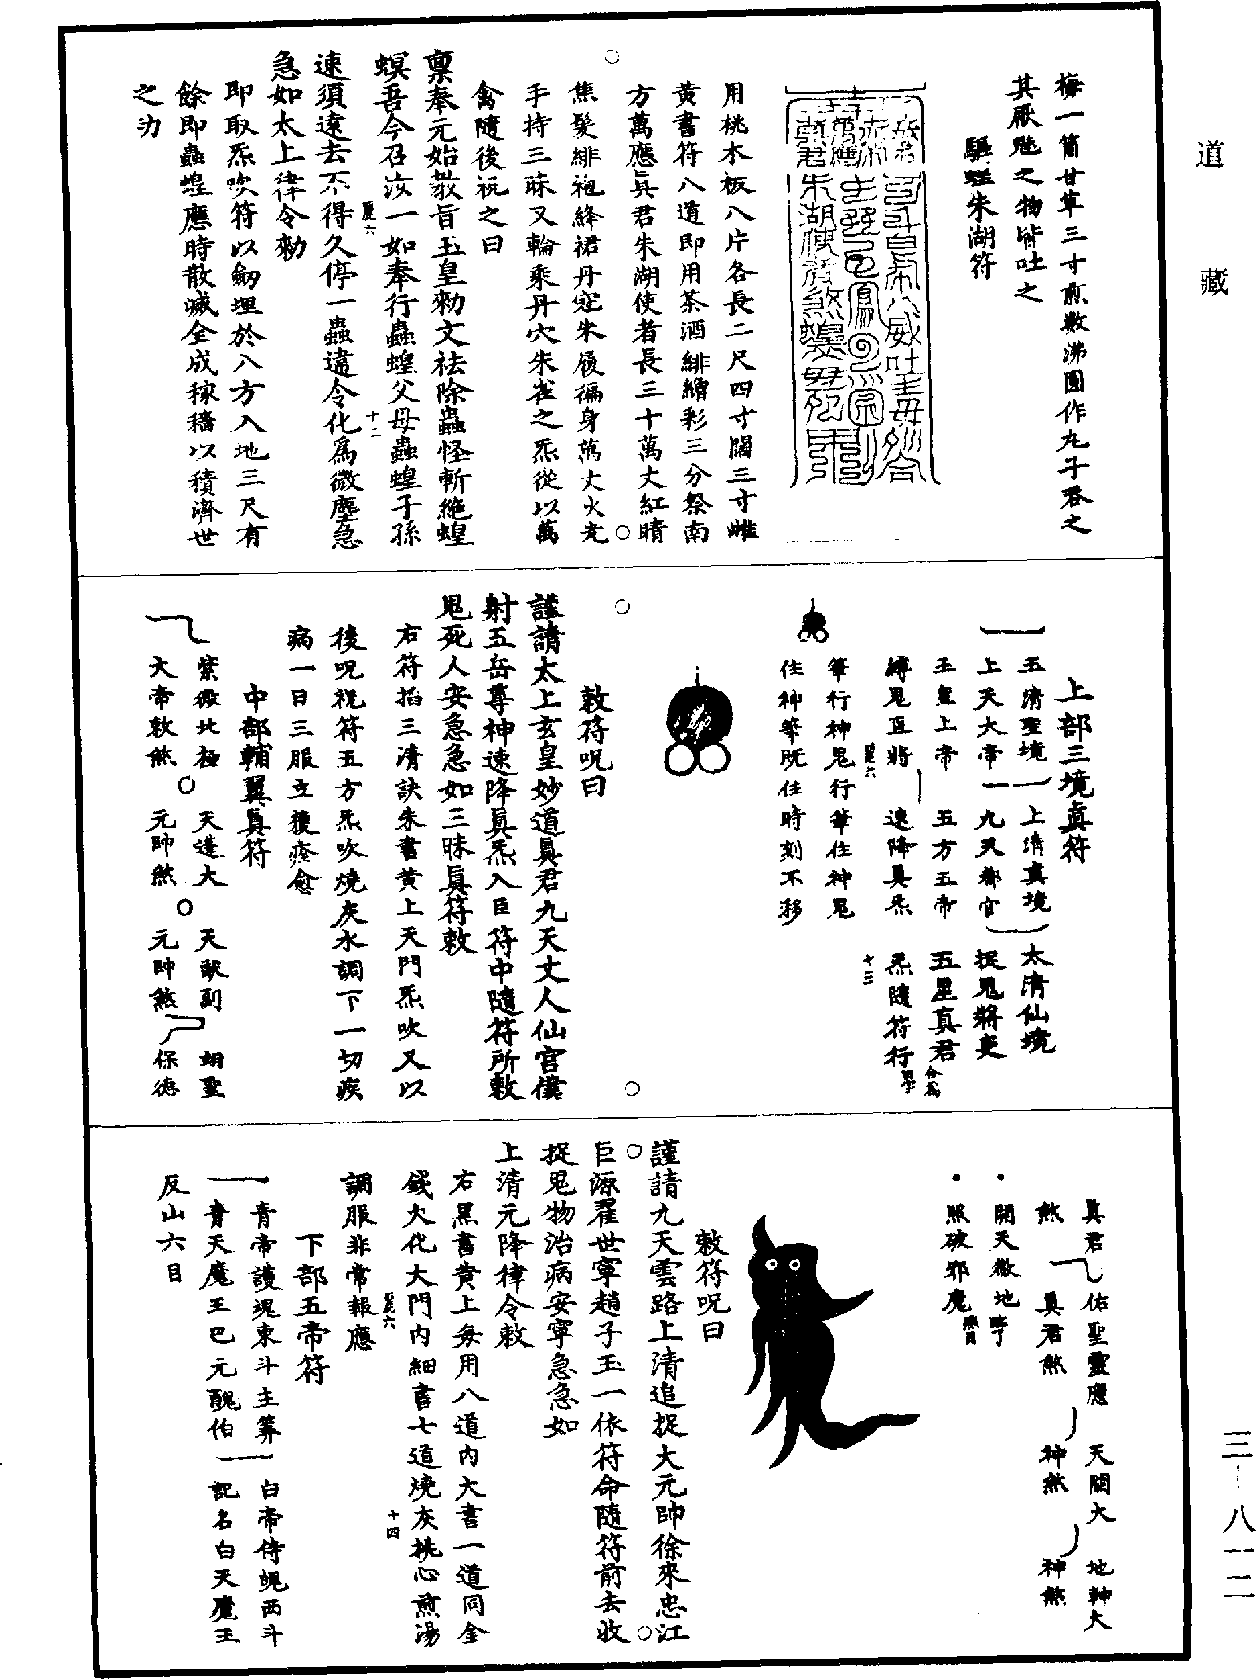 道藏
梅一箇甘草三寸煎數沸圓作丸子吞之
其厭魅之物皆吐之
驅蝗朱湖符
用桃木板八片各長二尺四寸闊三寸雌
黃書符八道即用茶酒緋繒彩三分祭南
方萬應眞君朱湖使者長三十萬丈紅睛
焦髮緋袍絳裙丹冠朱履徧身萬丈火光
手持三昧叉輪乘丹穴朱雀之炁從以萬
禽隨後祝之曰
禀奉元始教旨玉皇勑文祛除蟲怪斬絶蝗
螟吾今召汝一如奉行蟲蝗父母蟲蝗子孫
十二
速須遠去不得久停一蟲違令化爲微塵急
急如太上律令勑
即取炁吹符以劒埋於八方入地三尺有
餘即蟲蝗應時散滅全成稼穡以積濟世
之功
上部三境真符
玉清聖境 上清真境 太清仙境
上天大帝 九天都官 捉鬼將吏
玉皇上帝 五方五帝 五星真君
縛鬼直將 速降眞炁 炁隨符行
筆行神鬼行筆住神鬼
住神筆既住時刻不移
十三
敕符呪曰
謹請太上玄皇妙道眞君九天丈人仙官僕
射五岳尊神速降眞炁入臣符中隨符所敕
鬼死人安急急如三昧眞符敕
右符掐三清訣朱書黃上天門炁吹又以
後呪祝符五方炁吹燒灰水調下一切疾
病一日三服立獲痊愈
中部輔翼眞符
紫微北極 天蓬大 天猷副 翊聖
大帝敕煞 元帥煞 元帥煞 保德
眞君 佑聖靈應 天關大 地軸大
煞 眞君煞 神煞 神煞
開天徹地
照破邪魔
敕符呪曰
謹請九天雲路上清追捉大元帥徐來忠江
巨源翟世寧趙子玉一依符命隨符前去收
捉鬼物治病安寧急急如
上清元降律令敕
右黑書黃上每用八道內大書一道同金
錢大化大門內細書七道燒灰桃心煎湯
十四
調服非常報應
下部五帝符
青帝護魂東斗主筭 白帝侍魄西斗
青天魔王巴元醜伯 記名白天魔王
反山六目
三—八一二